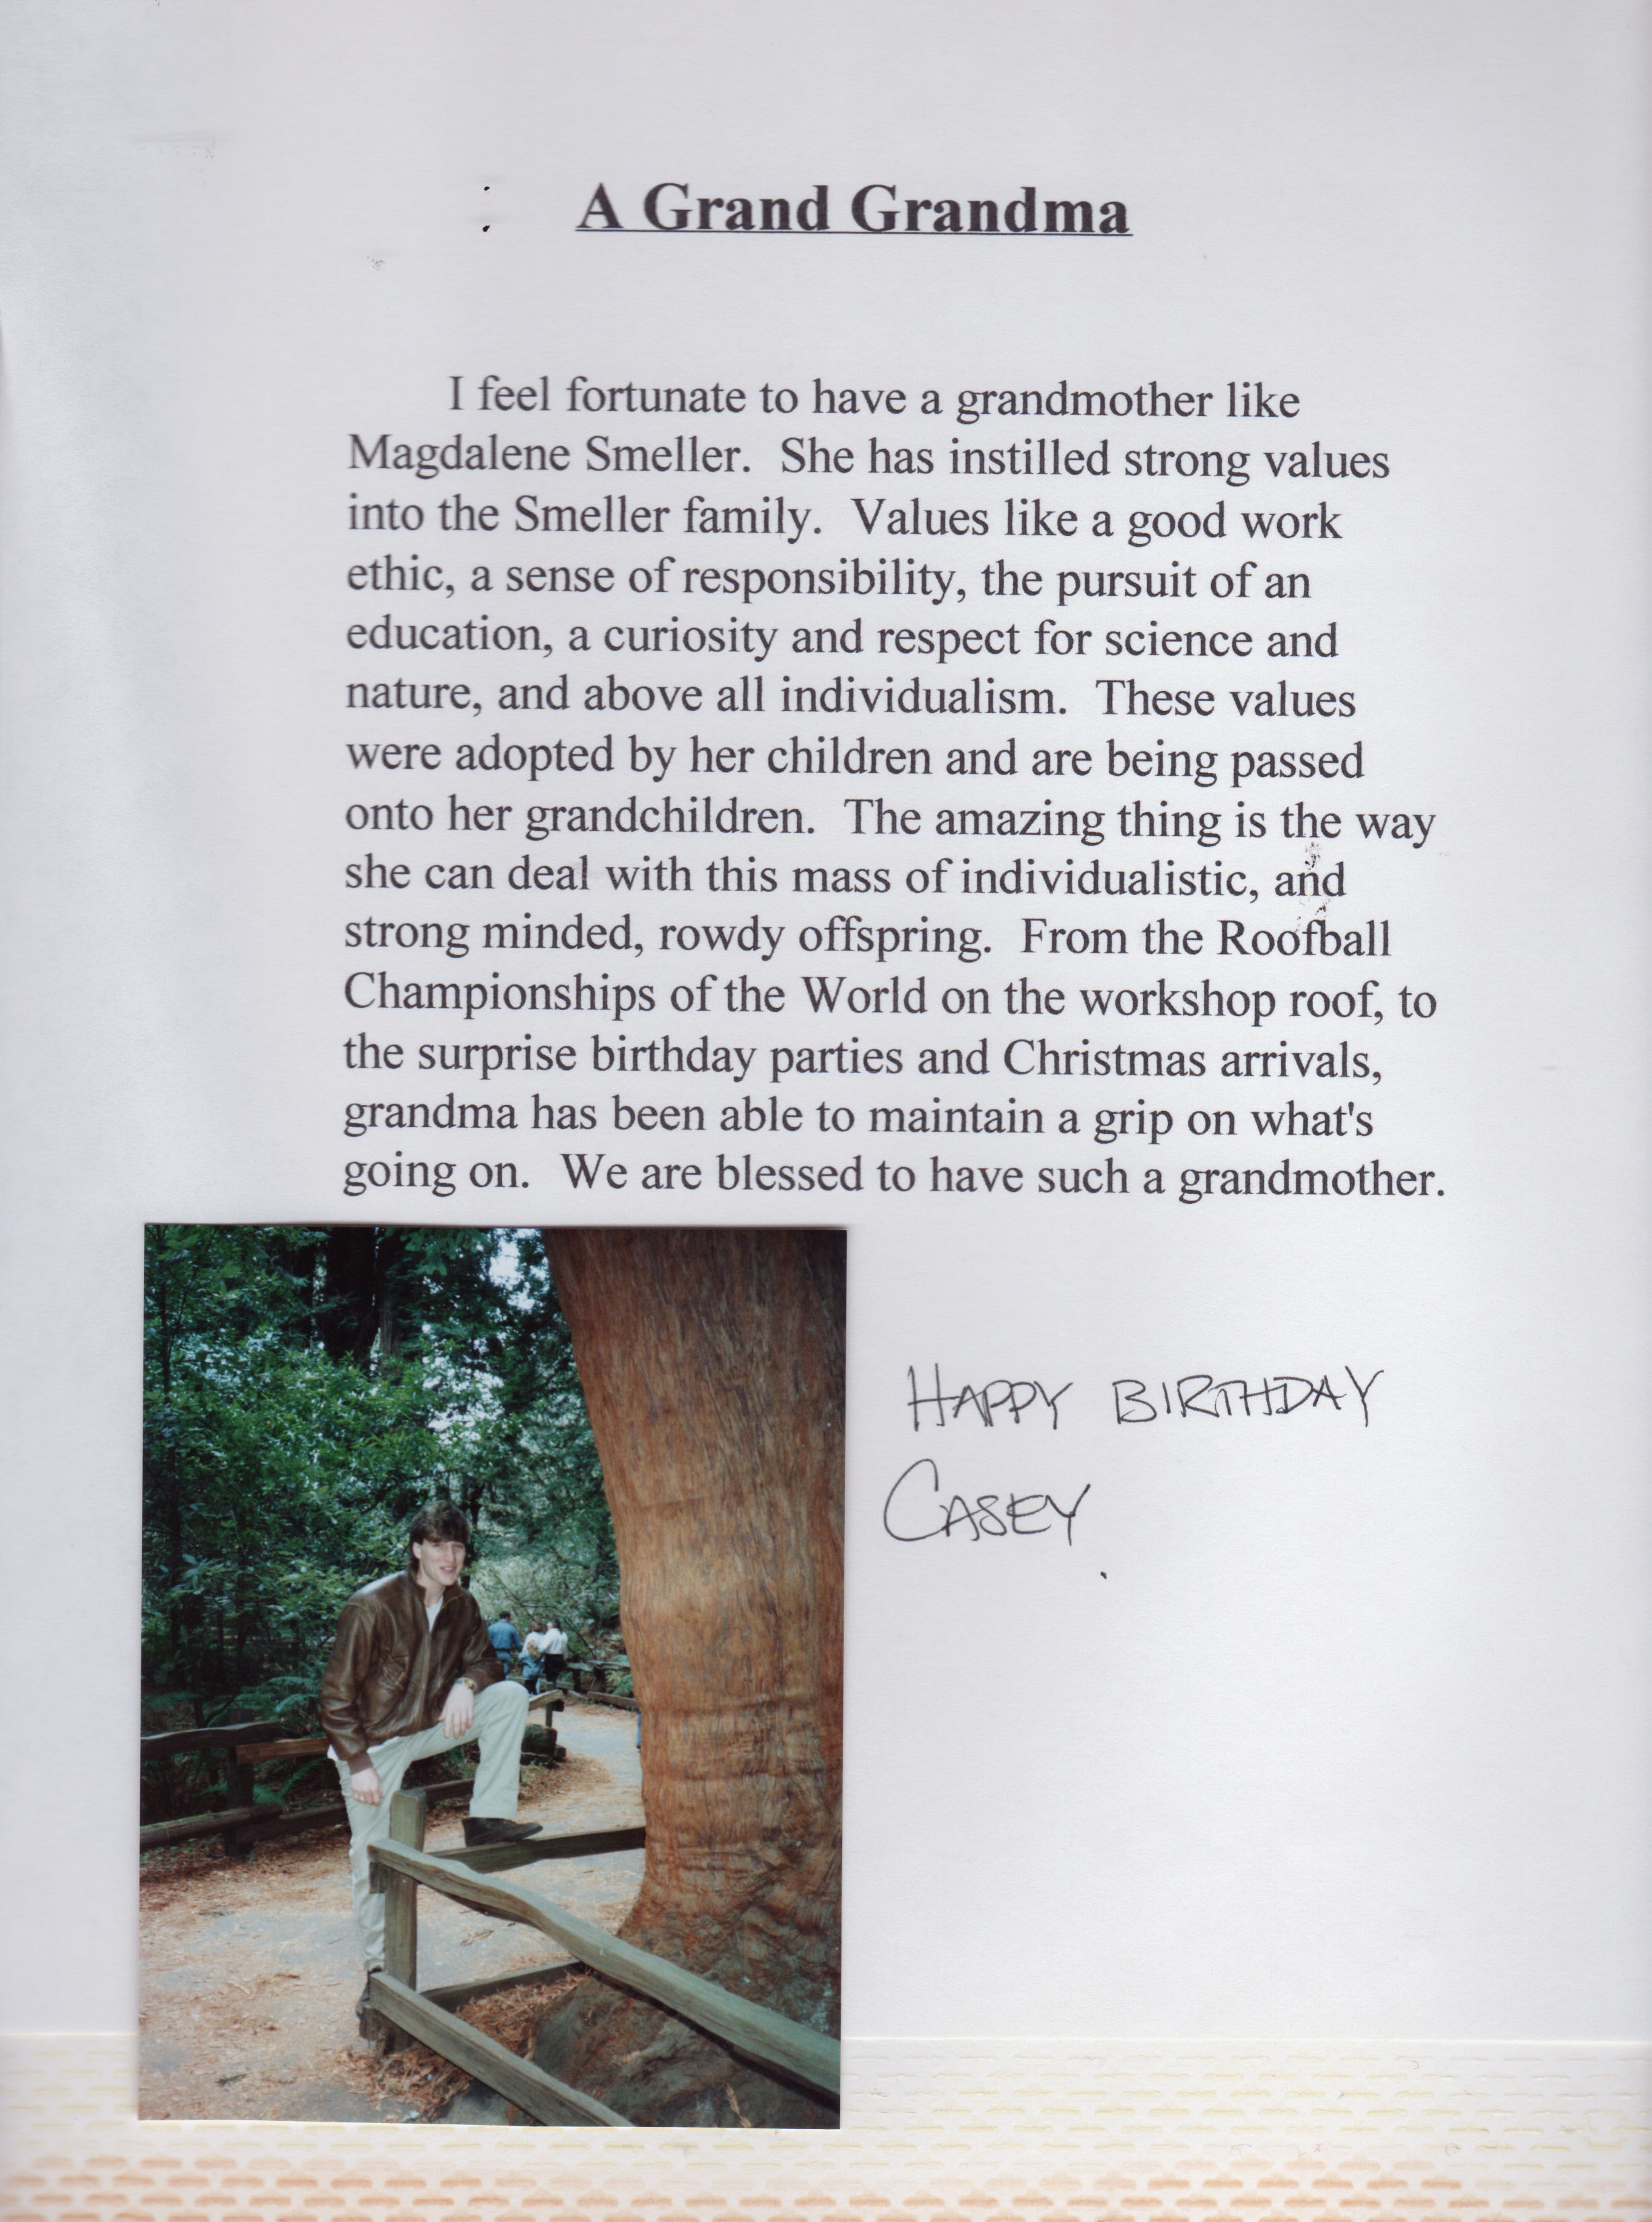 A Grand Grandma
I feel fortunate to have a grandmother like
Magdalene Smeller.  She has instilled strong values
into the Smeller family.  Values like a good work
ethic, a sense of responsibility, the pursuit of an
education, a curiosity and respect for science and
nature, and above all individualism.  These values
were adopted by her children and are being passed
onto her grandchildren.  The amazing thing is the way
she can deal with this mass of individualistic, and
strong minded, rowdy offspring.  From the Roofball
Championships of the World on the workshop roof, to
the surprise birthday parties and Christmas arrivals,
grandma has been able to maintain a grip on what's
going on.  We are blessed to have such a grandmother.
HAPPY BIRTHDAY
CASEY